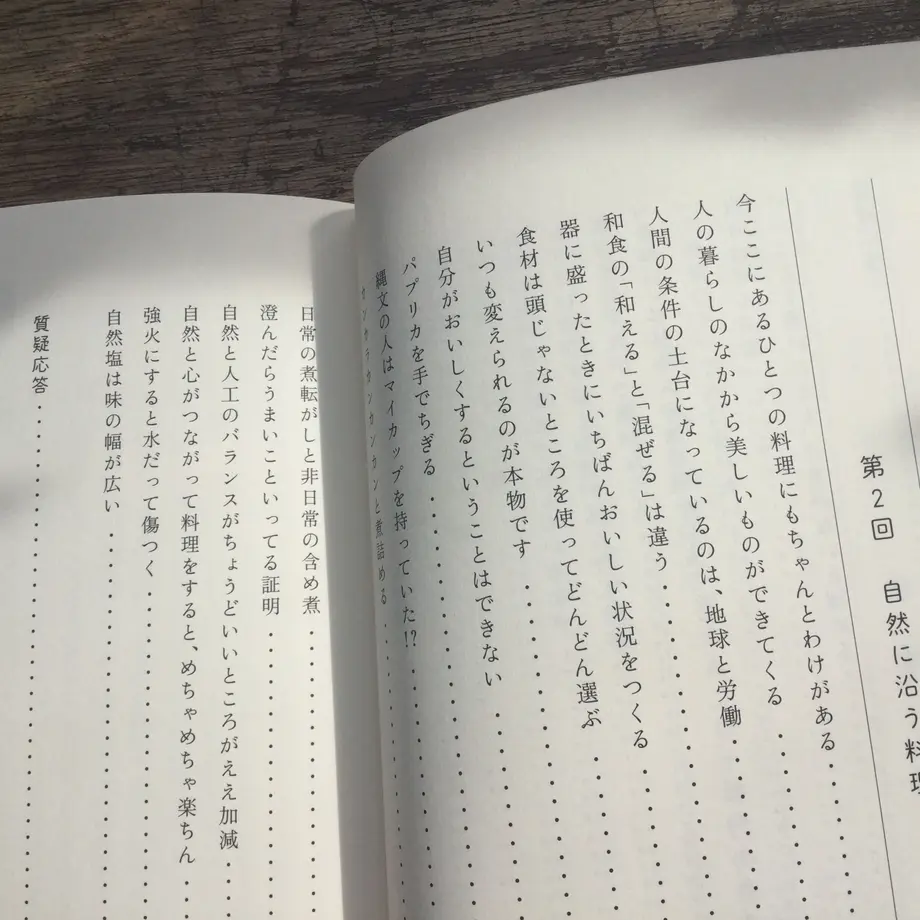 第2回 自然に沿う料理
今ここにあるひとつの料理にもちゃんとわけがある
人の暮らしのなかから美しいものができてくる
人間の条件の土台になっているのは、地球と労働
和食の「和える」と「混ぜる」は違う
器に盛ったときにいちばんおいしい状況をつくる
食材は頭じゃないところを使ってどんどん選ぶ
いつも変えられるのが本物です
自分がおいしくするということはできない
パプリカを手でちぎる
縄文の人はマイカップを持っていた!?
カンカラカンカンと煮詰める
日常の煮転がしと非日常の含め煮
澄んだらうまいこといってる証明
自然と人工のバランスがちょうどいいところがええ加減
自然と心がつながって料理をすると、めちゃめちゃ楽ちん
強火にすると水だって傷つく
自然塩は味の幅が広い
質疑応答